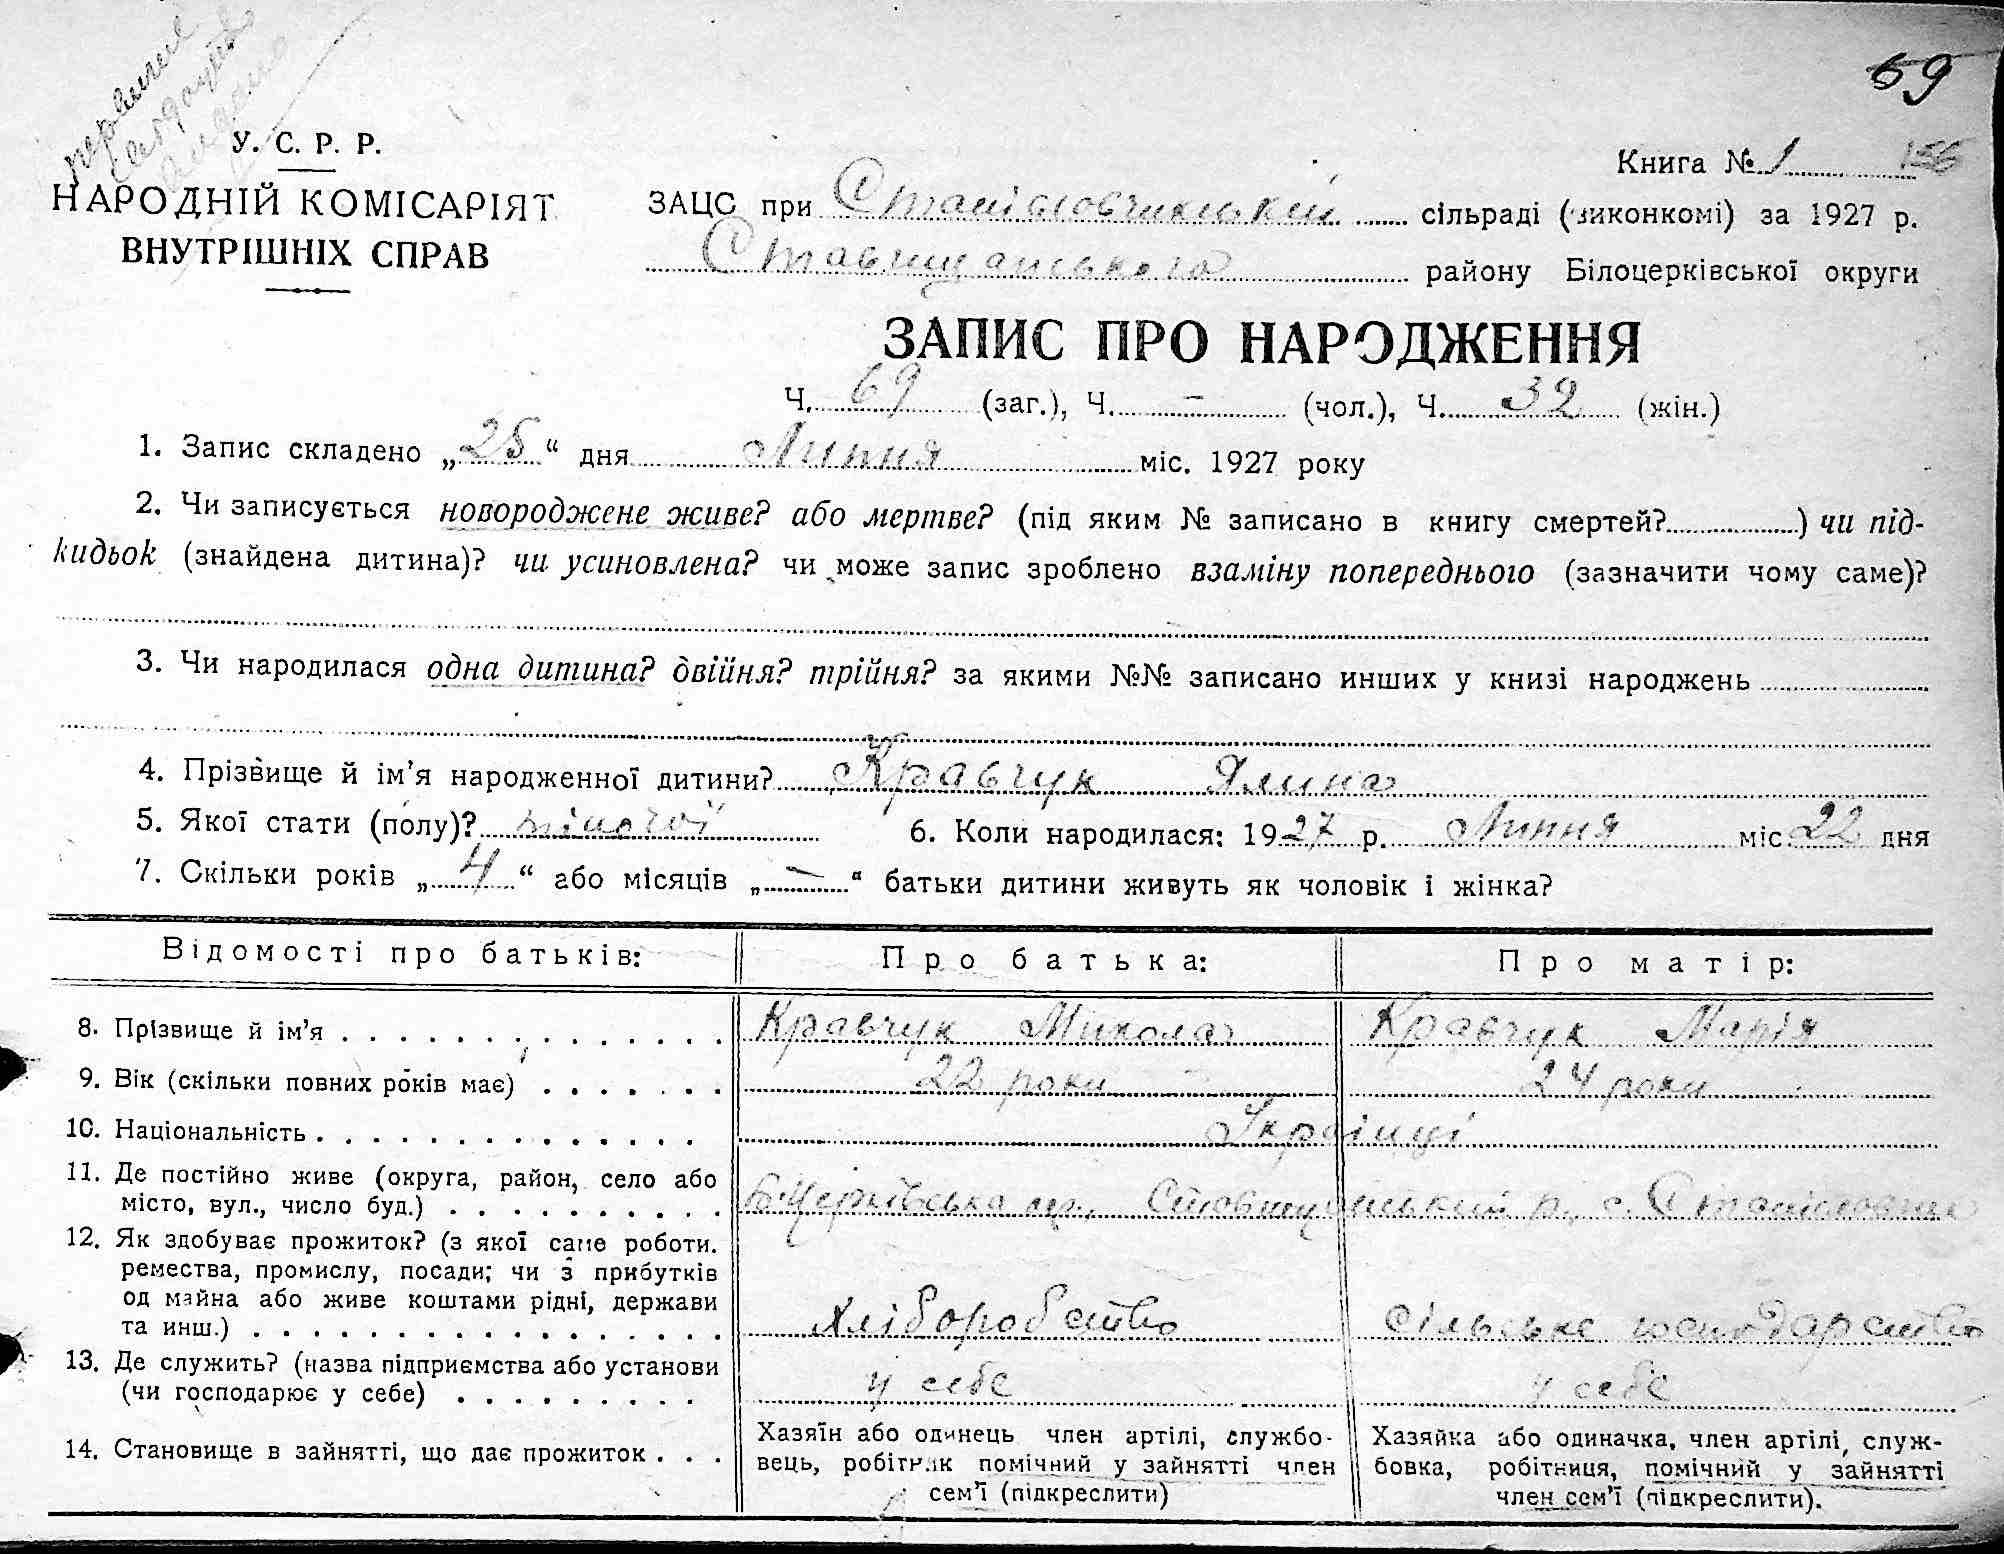 69
У. С. Р. Р.
НАРОДНІЙ КОМІСАРІЯТ
ВНУТРІШНІХ СПРАВ
Книга № 1 156
ЗАЦС при Станіславчикській сільраді (виконкомі) за 1927 р.
Ставищанського району Білоцерківської округи
ЗАПИС ПРО НАРОДЖЕННЯ
Ч. 69 (заг.), Ч. - (чол.), Ч. 32 (жін.)
1. Запис складено „25“ дня Липня міс. 1927 року
2. Чи записується новороджене живе? або мертве? (під яким № записано в книгу смертей?) чи під-
кидьок (знайдена дитина)? чи усиновлена? чи може запис зроблено взаміну попереднього (зазначити чому саме)?
3. Чи народилася одна дитина? двійня? трійня? за якими №№ записано инших у книзі народжень
4. Прізвище й ім’я народженної дитини? Кравчук Ялина
5. Якої стати (полу)? жіночої 6. Коли народилася: 1927 р. Липня міс. 22 дня
7. Скільки років „4“ або місяців „—“ батьки дитини живуть як чоловік і жінка?
Відомості про батьків: Про батька: Про матір:
8. Прізвище й ім’я Кравчук Микола Кравчук Марія
9. Вік (скільки повних років має) 22 роки 24 роки
10. Національність Українці
11. Де постійно живе (округа, район, село або
місто, вул., число буд.) Б-Церківська окр., Ставищанський р., с. Станіславчик
12. Як здобуває прожиток? (з якої саме роботи.
ремества, промислу, посади; чи з прибутків
од майна або живе коштами рідні, держави
та инш.) Хліборобство Сільське господарство
13. Де служить? (назва підприємства або установи
(чи господарює у себе) у себе у себе
14. Становище в зайнятті, що дає прожиток
Хазяїн або одинець член артілі, службо-
вець, робітник помічний у зайнятті член
сем’ї (підкреслити)
Хазяйка або одиначка, член артілі, служ-
бовка, робітниця, помічний у зайнятті
член сем’ї (підкреслити).